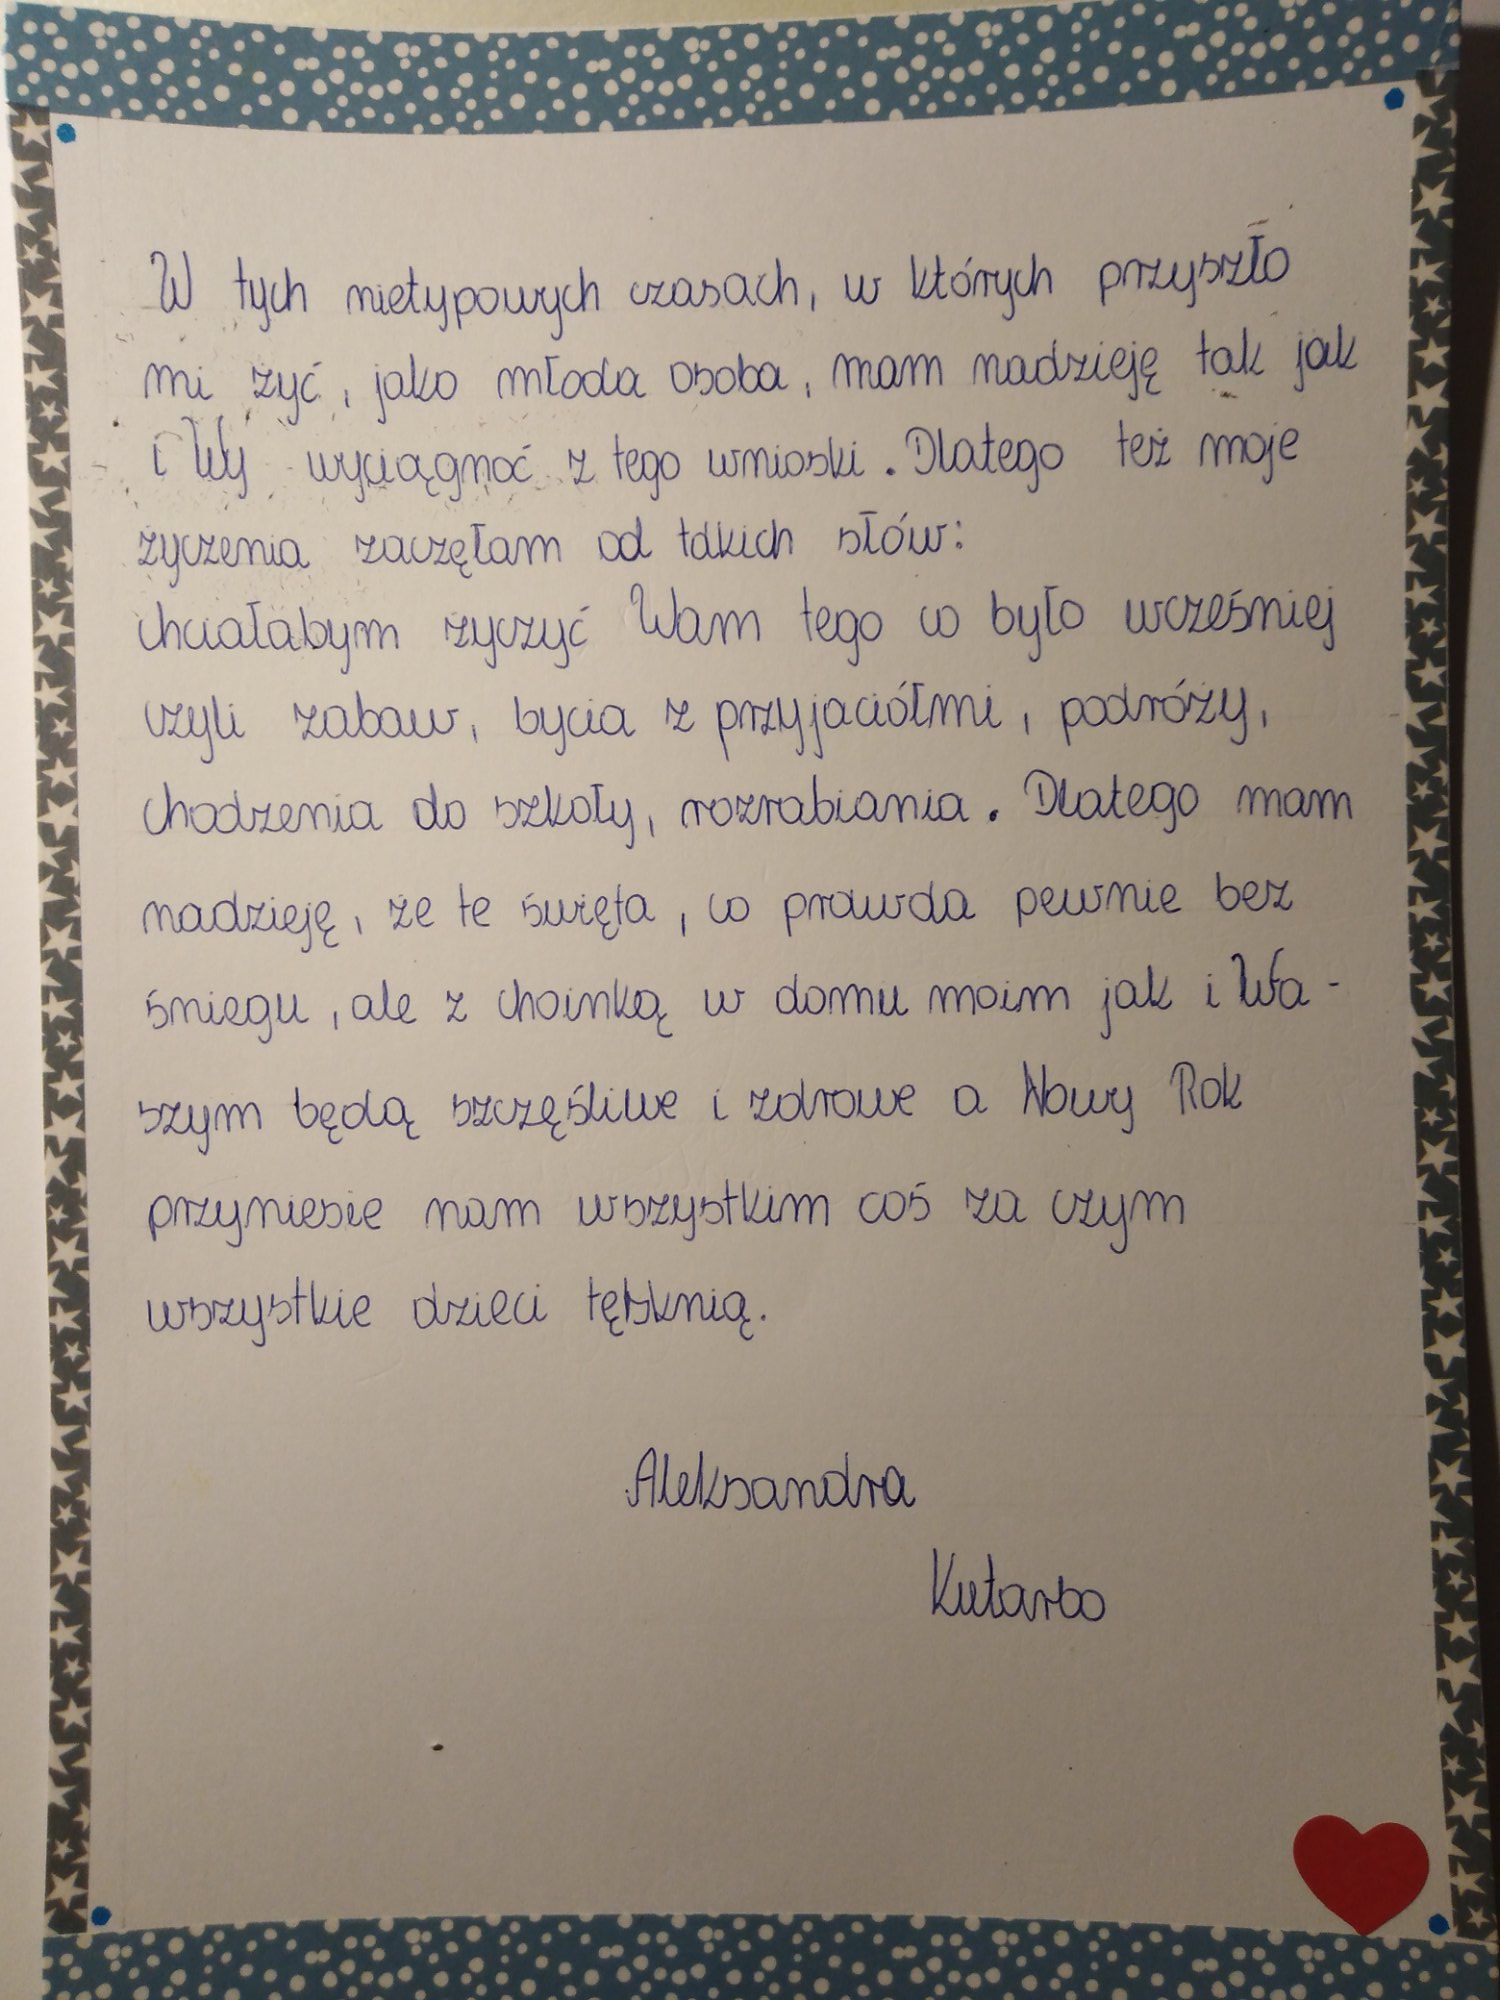 W tych nietypowych czasach, w których przyszło
mi żyć, jako młoda osoba, mam nadzieję tak jak
i Wy wyciągnoć z tego wnioski. Dlatego też moje
życzenia zaczęłam od takich słów:
chciałabym życzyć Wam tego co było wcześniej
czyli zabaw, bycia z przyjaciółmi, podróży,
chodzenia do szkoły, rozrabiania. Dlatego mam
nadzieję, że te święta, co prawda pewnie bez
śniegu, ale z choinką w domu moim jak i Wa-
szym będą szczęśliwe i zdrowe a Nowy Rok
przyniesie nam wszystkim coś za czym
wszystkie dzieci tęsknią.
Aleksandra
Kutarbo